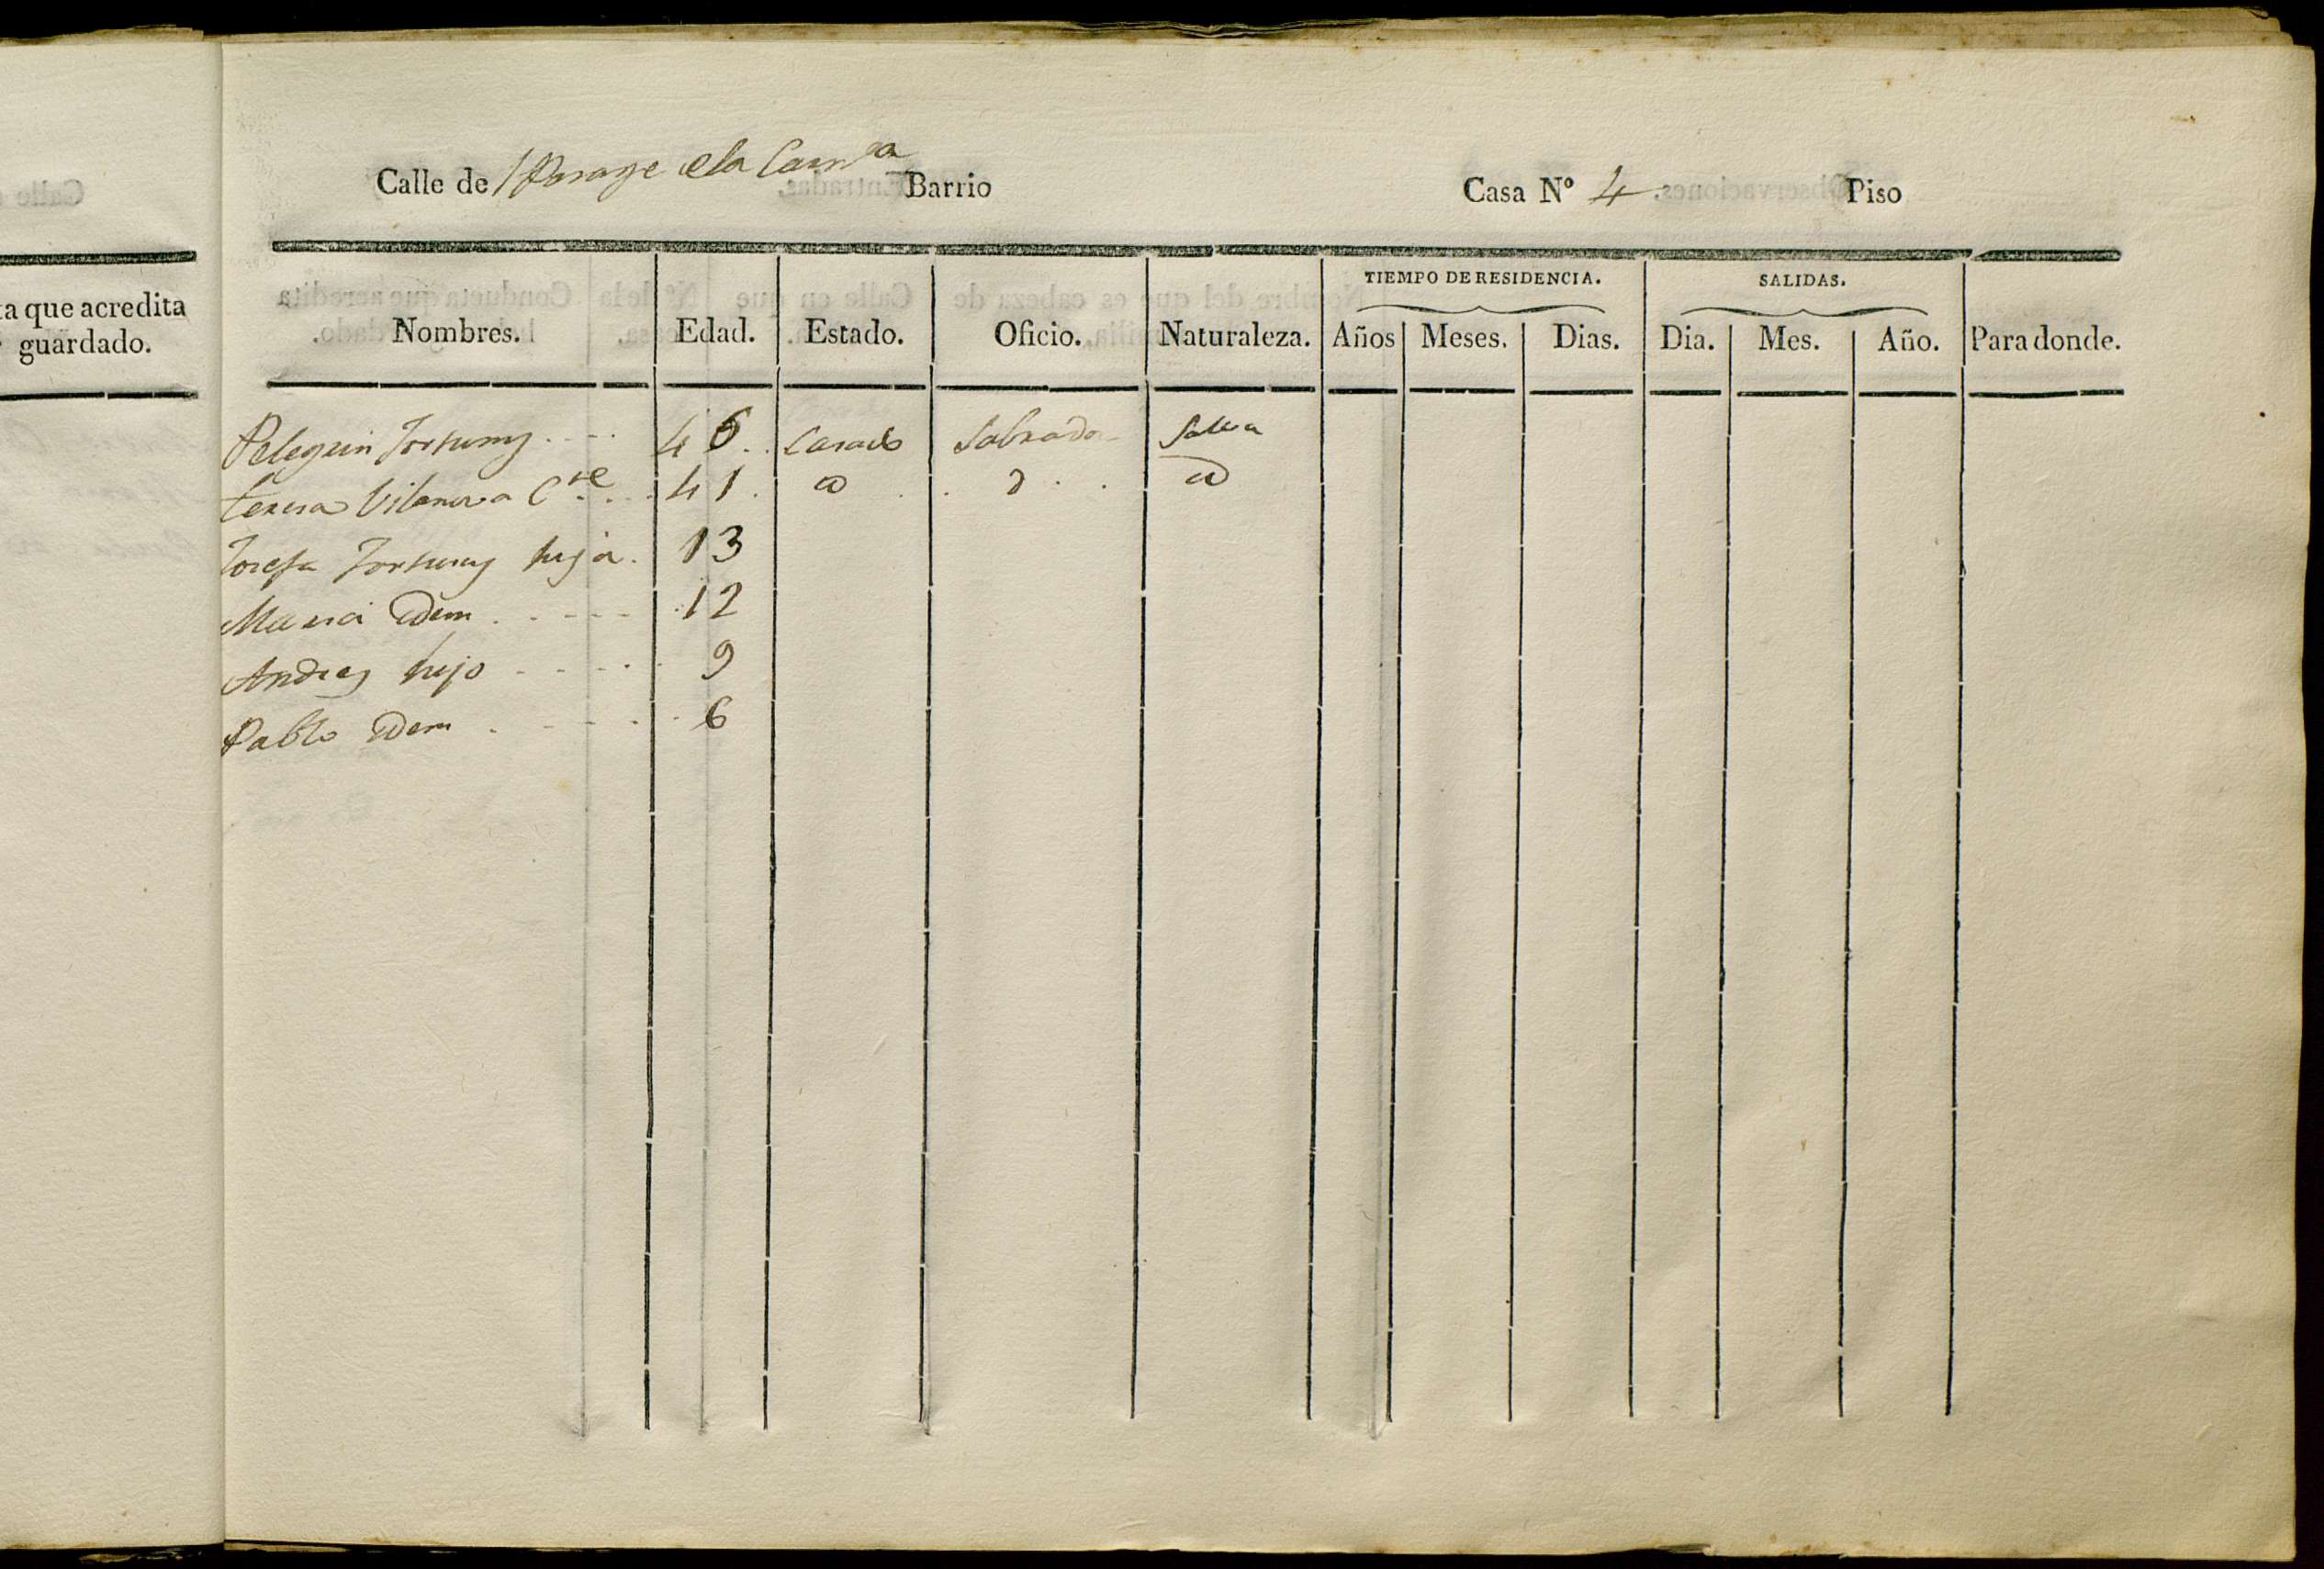 Calle de Parage de la Barrio Casa Nº 4 Piso
ta que acredita
guardado.
TIEMPO DE RESIDENCIA. SALIDAS.
Nombres. Edad. Estado. Oficio. Naturaleza. Años Meses. Dias. Dia. Mes. Año. Para donde.
Pelegrin Fortuny 46 Casado Labrador
Teresa Vilanova C.te 41 id d id
Josefa Fortuny hija. 13
Maria Idem 12
Andres hijo 9
Pablo Idem 6